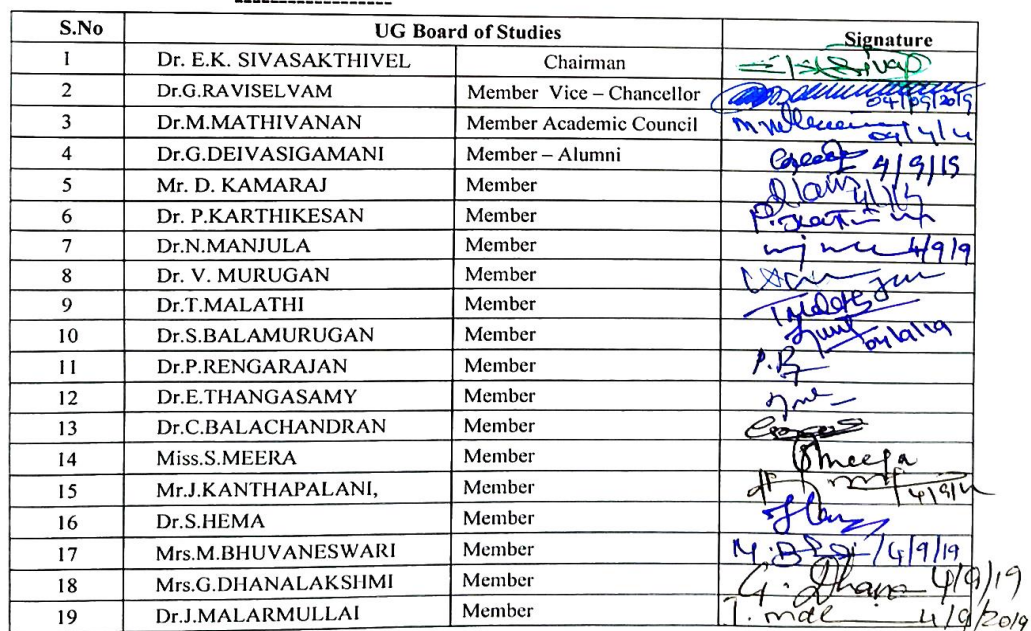 S.No UG Board of Studies Signature
1 Dr. E.K. SIVASAKTHIVEL Chairman
2 Dr.G.RAVISELVAM Member Vice – Chancellor 04/09/2019
3 Dr.M.MATHIVANAN Member Academic Council
4 Dr.G.DEIVASIGAMANI Member – Alumni
5 Mr. D. KAMARAJ Member
6 Dr. P.KARTHIKESAN Member
7 Dr.N.MANJULA Member 4/9/19
8 Dr. V. MURUGAN Member
9 Dr.T.MALATHI Member
10 Dr.S.BALAMURUGAN Member 04/9/19
11 Dr.P.RENGARAJAN Member
12 Dr.E.THANGASAMY Member
13 Dr.C.BALACHANDRAN Member
14 Miss.S.MEERA Member
15 Mr.J.KANTHAPALANI, Member
16 Dr.S.HEMA Member
17 Mrs.M.BHUVANESWARI Member 4/9/19
18 Mrs.G.DHANALAKSHMI Member G. Dhana 4/9/19
19 Dr.J.MALARMULLAI Member 4/9/2019